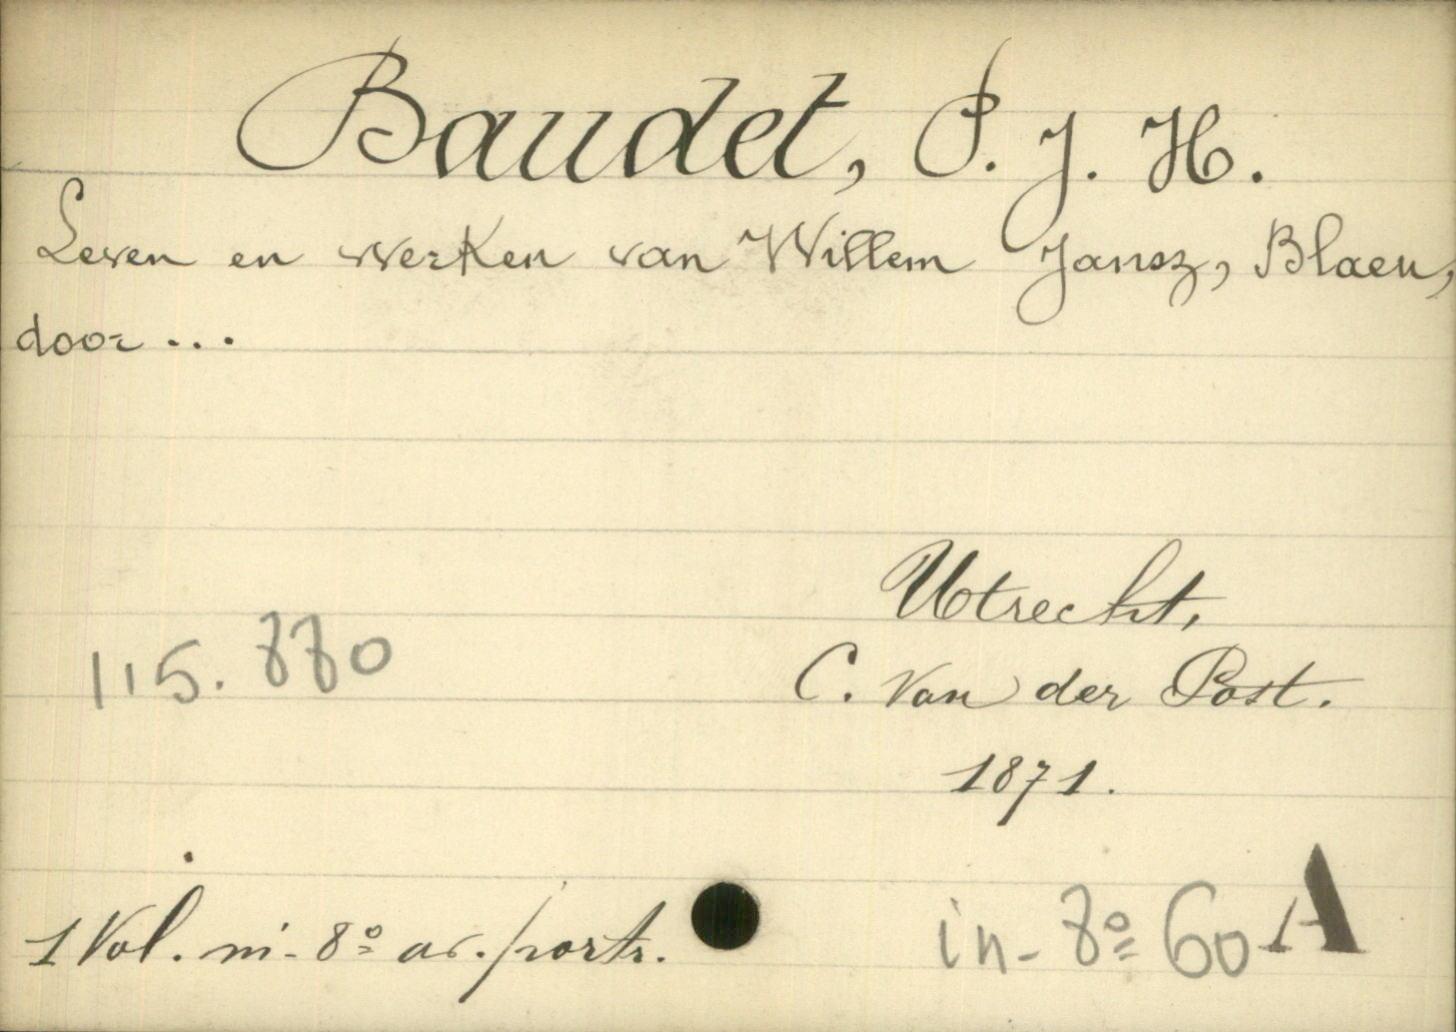 Baudet, P. J. H.
Leven en werken van Willem Jansz, Blaeu,
door ...
Utrecht,
115.880
C. Van der Post.
1871.
1 Vol. in-8º av. portr.
in-8º 60 A